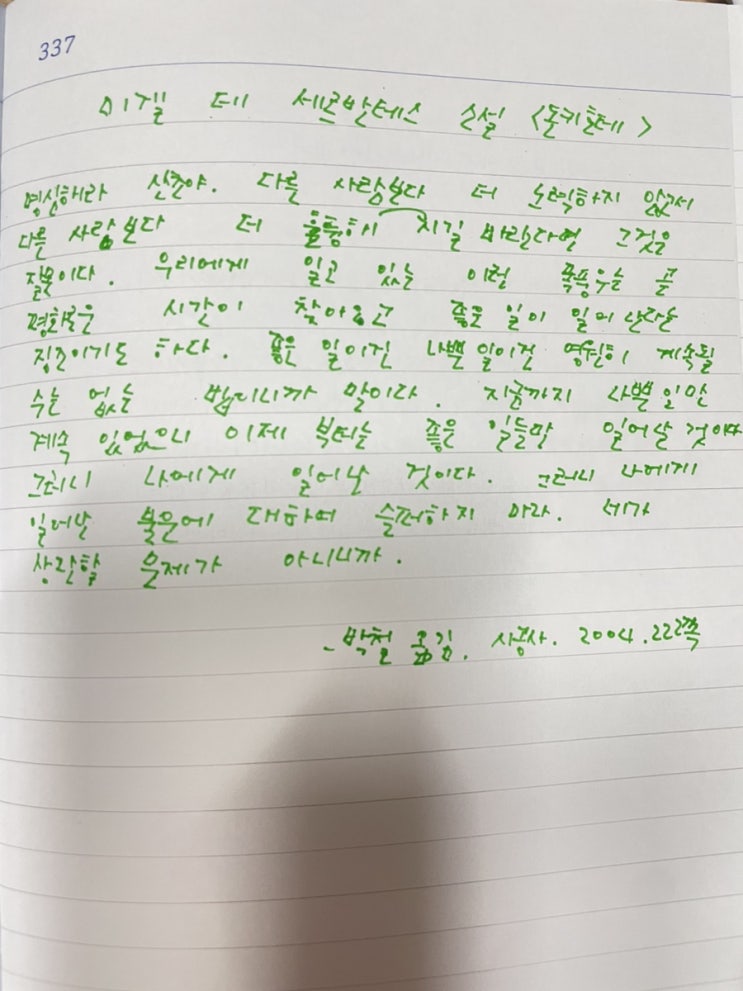 337
미겔 데 세르반테스 소설 <돈키호테>
명심해라 산초야. 다른 사람보다 더 노력하지 않고서
다른 사람보다 더 훌륭해지길 바란다면 그것은
잘못이다. 우리에게 일고 있는 이런 폭풍우는 곧
평화로운 시간이 찾아오고 좋은 일이 일어난다는
징조이기도 하다. 좋은 일이건 나쁜 일이건 영원히 계속될
수는 없는 법이니까 말이다. 지금까지 나쁜 일만
계속 있었으니 이제 부터는 좋은 일들만 일어날 것이다
그러니 나에게 일어날 것이다. 그러니 나에게
일어난 불운에 대하여 슬퍼하지 마라. 네가
상관할 문제가 아니니까.
- 박철 옮김. 시공사. 2004. 222쪽